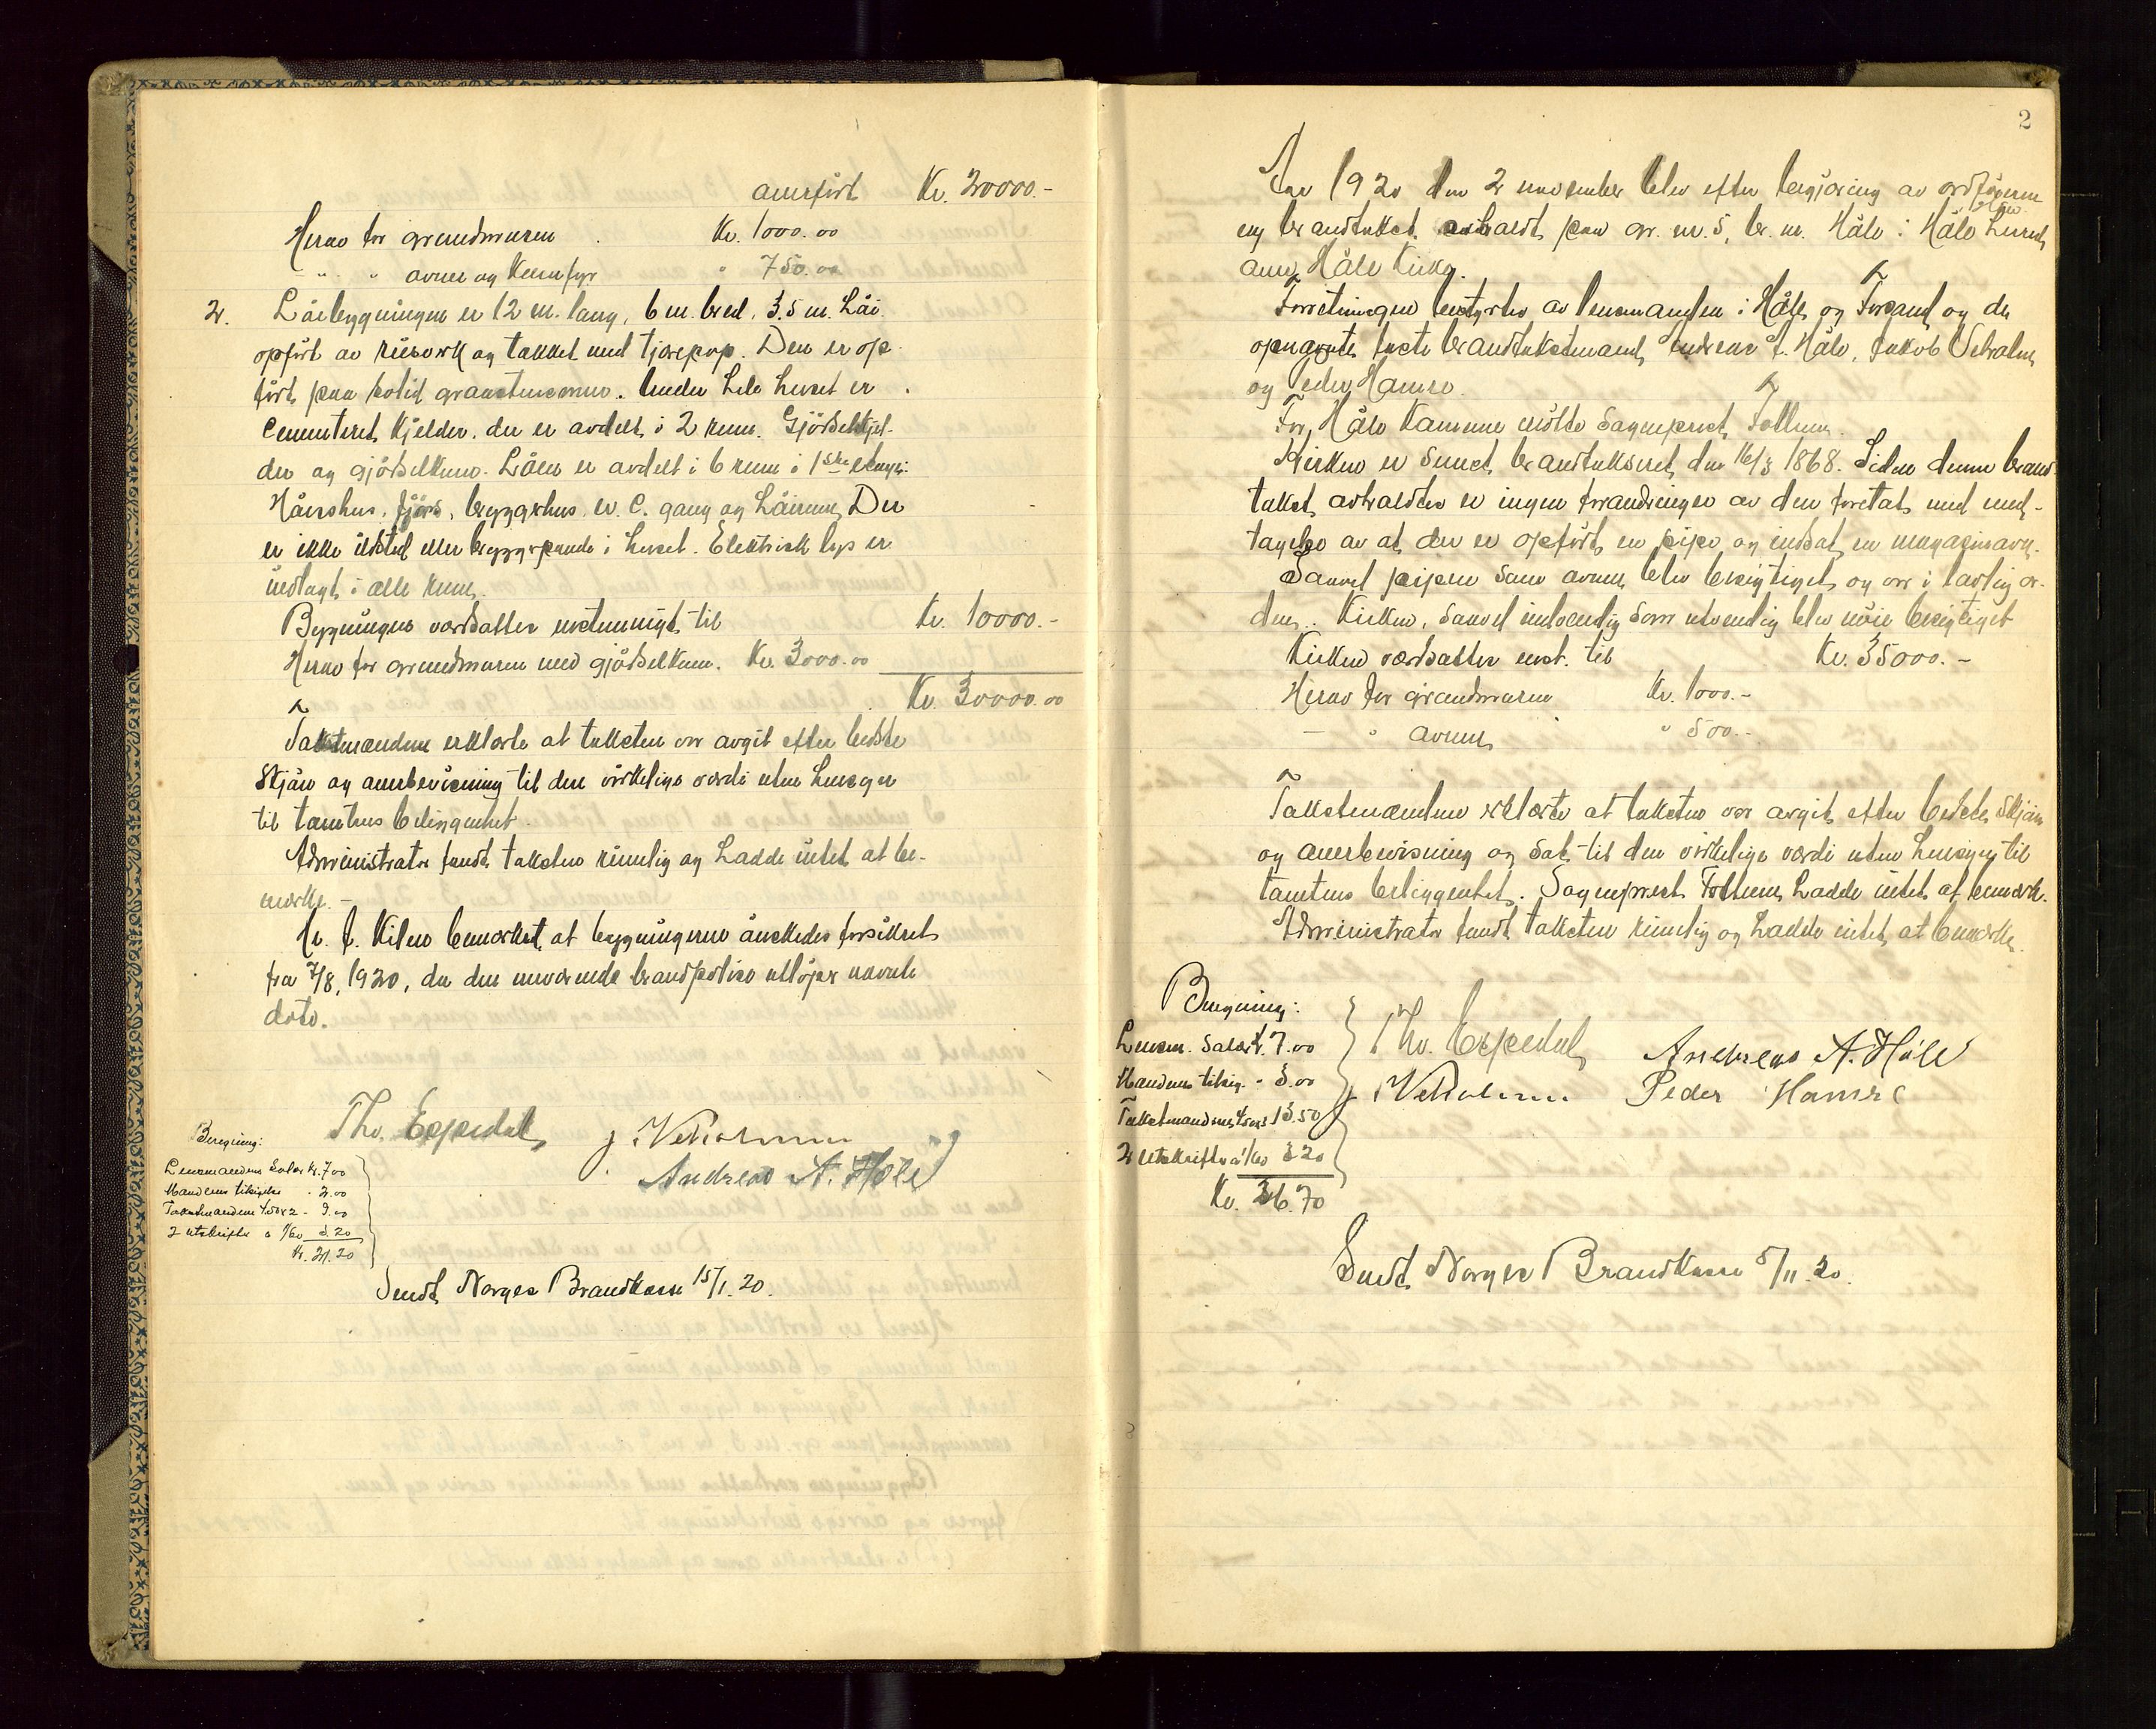 anerført Kr. 20000.-
Herav for grundmuren Kr. 1000.00
" " " ovner og komfyr " 750.00
2. Låebygningen er 12 m. lang, 6 m. bred, 3.5 m. høi
opført av reisverk og tækket med tjærepap. Den er op-
ført paa solid graastensmur. Under hele huset er
cementeret kjelder, der er avdelt i 2 rum. Gjødselkjel-
der og gjødselkum. Låen er avdelt i 6 rum i 1ste etage:
Hønsehus, fjøs, bryggerhus, W. C. gang og høirum. Der
er ikke ildsted eller bryggepande i huset. Elektrisk lys er
indlagt i alle rum.
Bygningen værdsattes enstemmigt til Kr. 10000.-
Herav for grundmuren med gjødselkum. Kr. 3000.00
Kr. 30000.00
Takstmændene erklærte at taksten var avgit efter bedste
skjøn og overbevisning til den virkelige værdi uten hensyn
til tomtens beliggenhet.
Administrator fandt taksten rimelig og hadde intet at be-
merke.-
Hr. J. Kilen bemerket at bygningerne ønskedes forsikret
fra 7/8, 1920, da den nuværende brandpolise utløper nævnte
dato.
Tho. Espedal J. Vetrhuus
Andreas A. Høle
Beregning:
Lensmandens Salær Kr. 7.00
Mandens tilsigelse - 2.00
Takstmændene 4.50 x 2 - 9.00
2 utskrifter a 1/60 3.20
Kr. 21.20
Sendt Norges Brandkasse 15/1. 20.
2
Aar 1920 den 2 november blev efter begjæring av ordføreren
ny brandtakst avholdt paa gr. nr. 5, br. nr. Høle i Høle herred,
Høle kirke.
Forretningen bestyrtes av lensmanden i Høle og Forsand og de
opnævnte faste brandtakstmænd Andreas A. Høle, Jakob
og Peder Hamre.
For Høle Kommune møtte Sogneprest Tollum.
Kirken er senest brandtakseret den 16/3 1868. Siden denne brand
takst avholdtes er ingen forandringer av den foretat, med und-
tagelse av at der er opført en pipe og indsat en magasinovn.
Saavel pipen som ovnen blev besigtiget og var i lovlig or-
den. Kirken, saavel indvendig som utvendig blev nøie besigtiget
Kirken værdsattes enst. til Kr. 35000.-
Herav for grundmuren Kr. 1000.-
- " ovnen " 500.-
Takstmændene erklærte at taksten var avgit efter bedste skjøn
og overbevisning og sat til den virkelige værdi uten hensyn til
tomtens beliggenhet. Sogneprest Tollum hadde intet at bemerke.
Administrator fandt taksten rimelig og hadde intet at bemerke.
Beregning:
Lensm. Salær Kr. 7.00
Mandens tilsig. - 3.00
Takstmændenes 13.50
2 utskrifter a 1/60 3.20
Kr. 26.70
Tho. Espedal Andreas A. Høle
J. Vetrhuus Peder Hamre
Sendt Norges Brandkasse 5/11. 20.